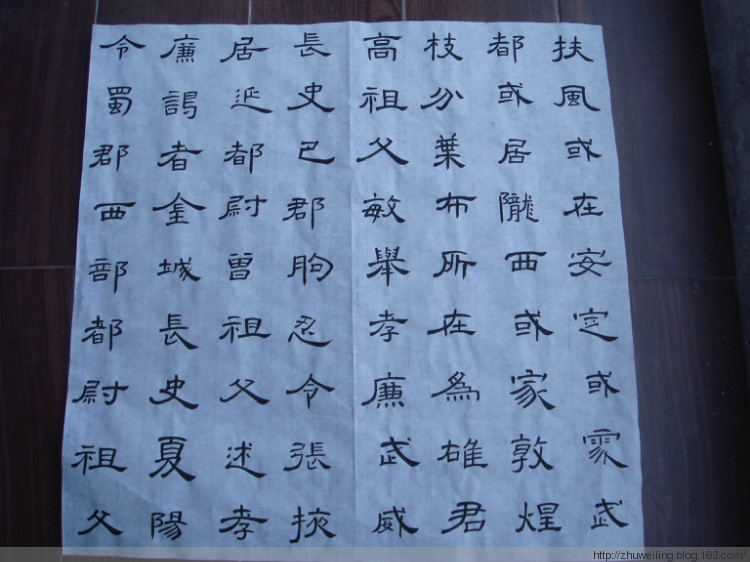 扶風或在安定或處武
都或居隴西或家敦煌
枝分葉布所在爲雄君
高祖父敏舉孝廉武威
長史巴郡朐忍令張掖
居延都尉曾祖父述孝
廉謁者金城長史夏陽
令蜀郡西部都尉祖父
http://zhuweiling.blog.163.com/